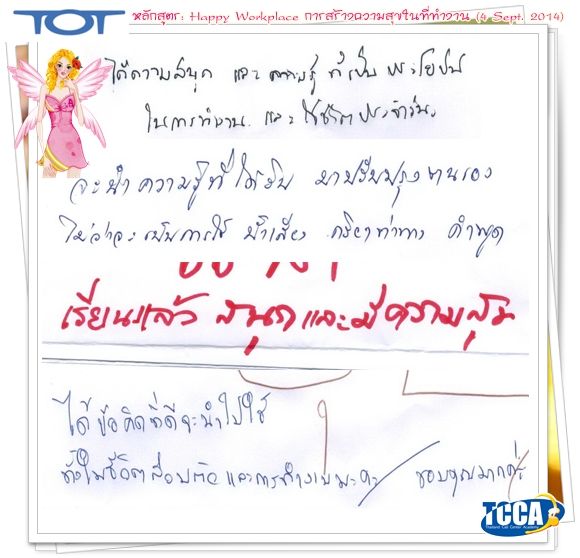 TOT
หลักสูตร: Happy Workplace การสร้างความสุขในที่ทำงาน (4 Sept. 2014)
ได้ความสนุก และ ความรู้ ที่เป็น ประโยชน์
ในการทำงาน และ ใช้ชีวิตประจำวัน
จะนำความรู้ที่ได้รับ มาปรับปรุงงานของ
ไม่ว่าจะเป็นการใช้ น้ำเสียง กริยาท่าทาง คำพูด
เรียนแล้ว สนุกและมีความสุข
ได้ข้อคิดที่ดีจะนำไปใช้
ทั้งในชีวิตส่วนตัวและการทำงานนะคะ ขอบคุณมากค่ะ
TCCA
Thailand Call Center Academy